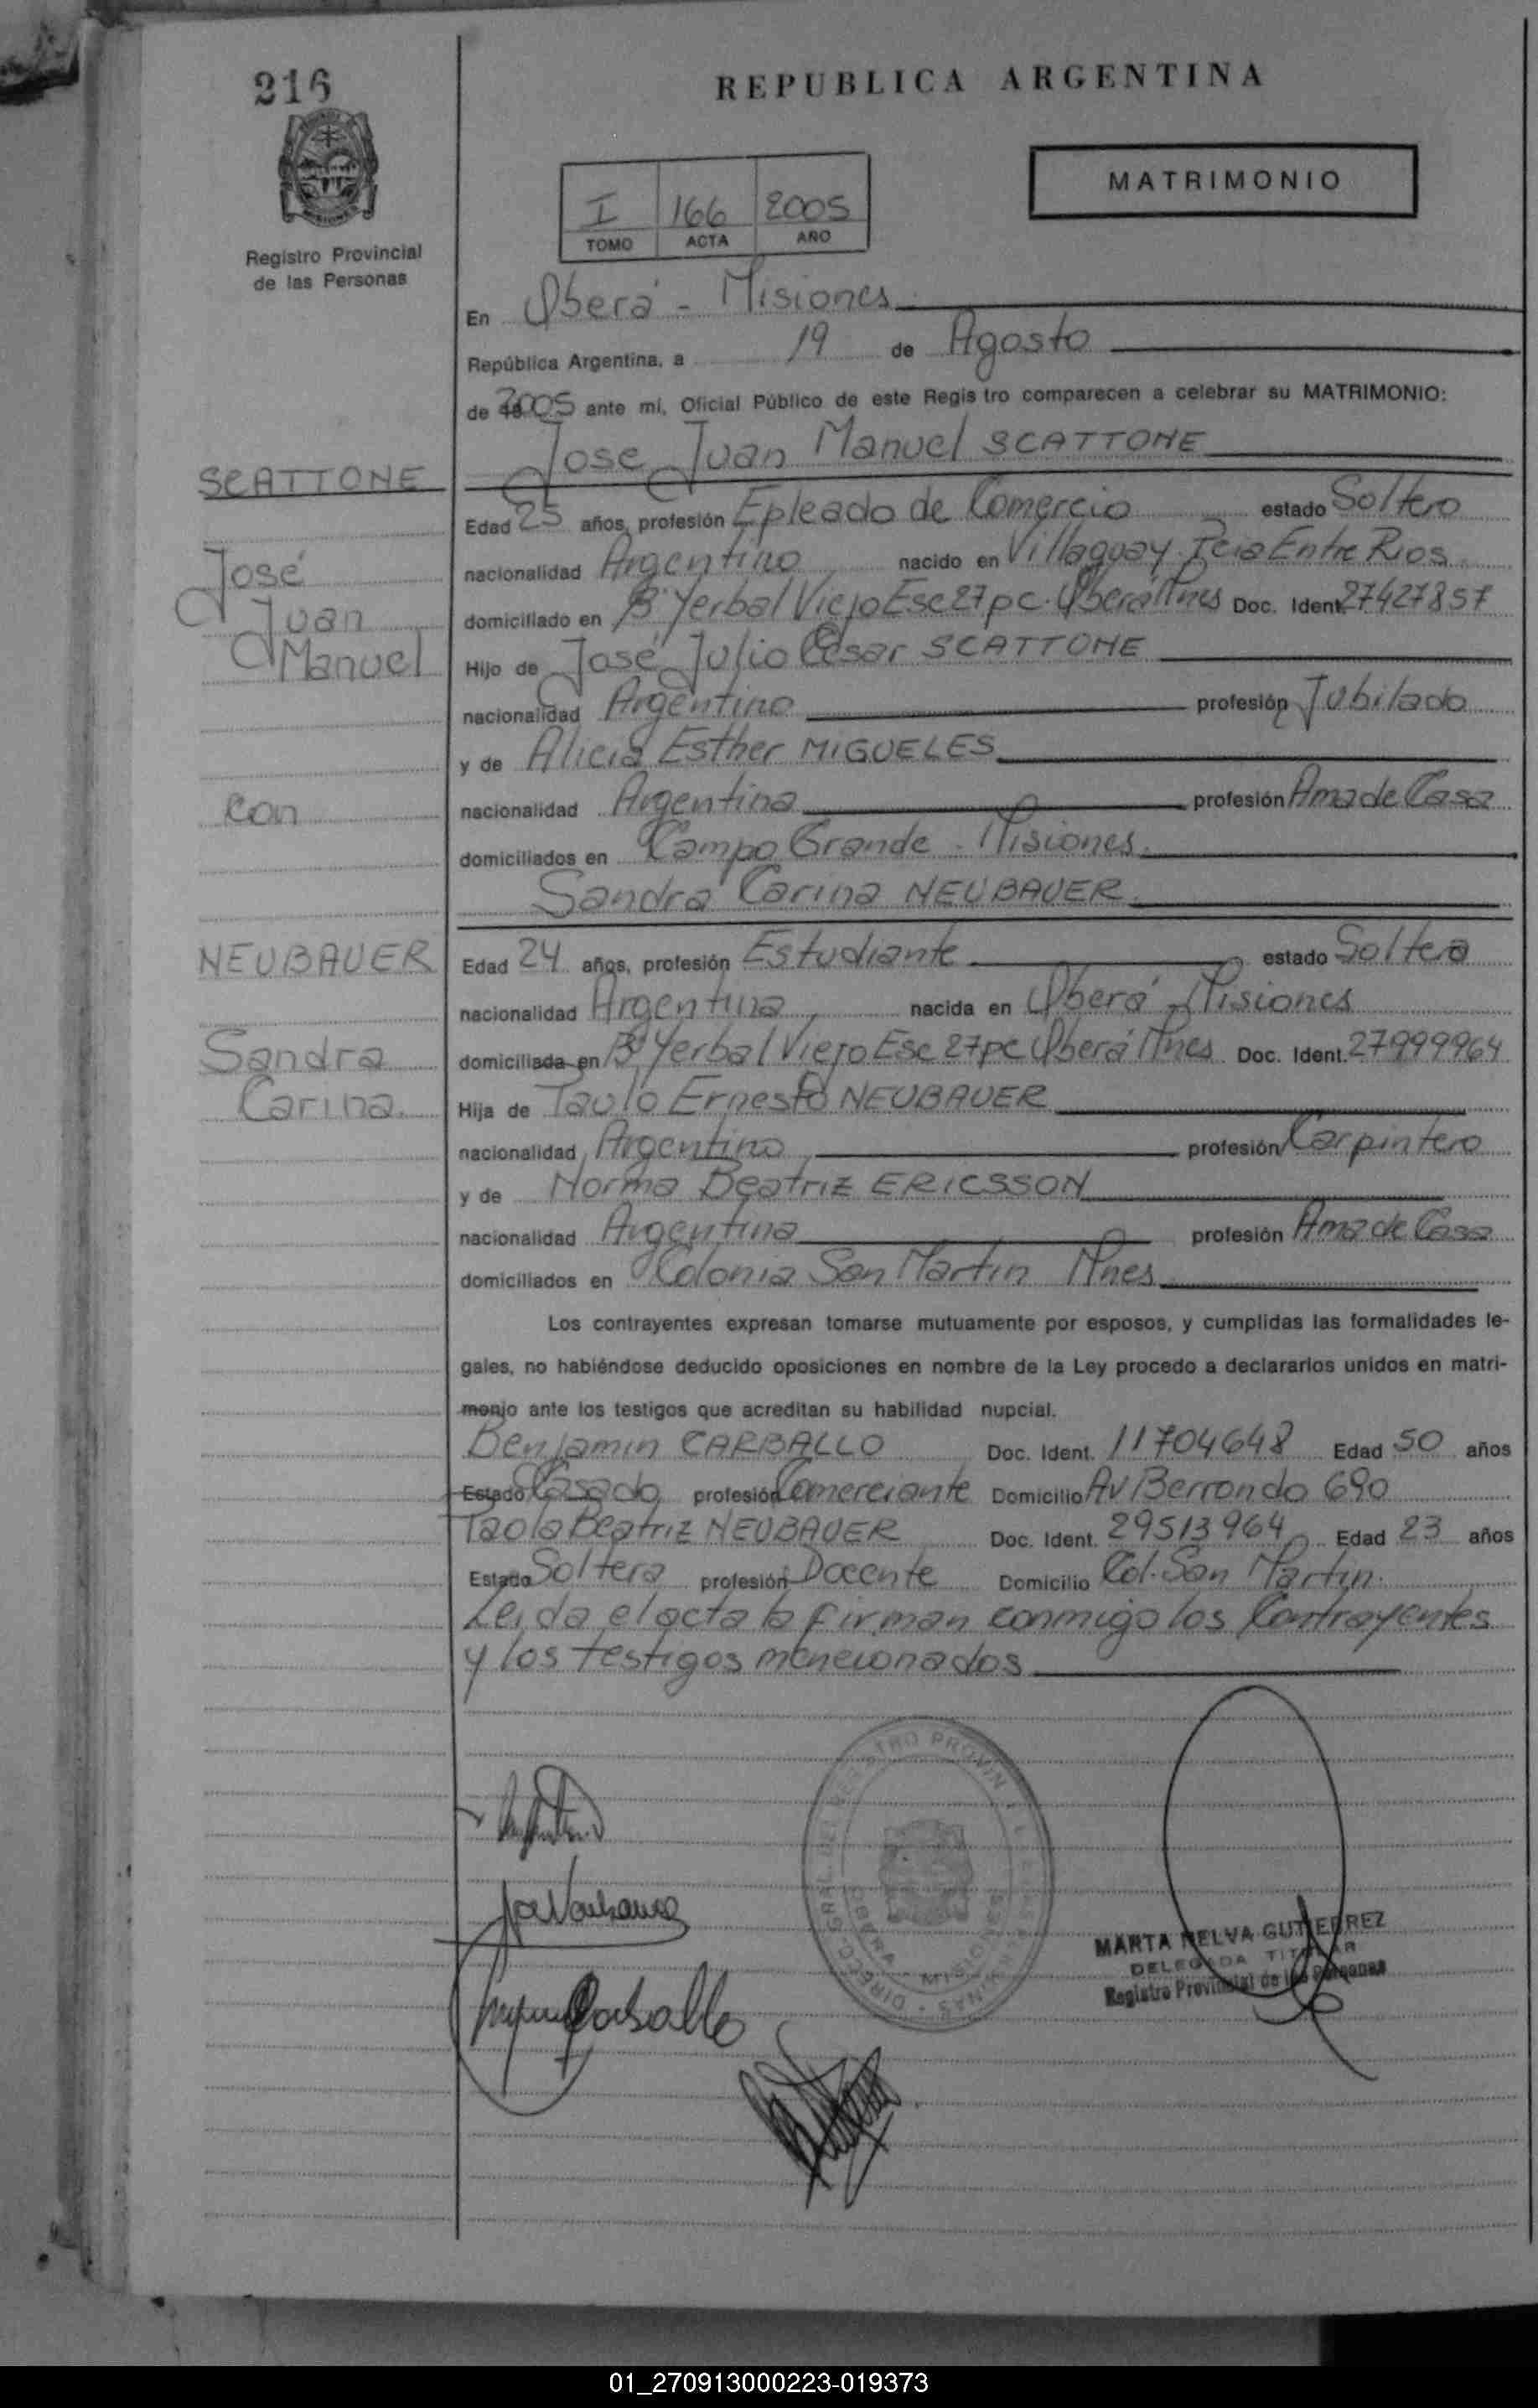 216
REPUBLICA ARGENTINA
MATRIMONIO
I 166 2005
TOMO ACTA AÑO
Registro Provincial
de las Personas
En Oberá - Misiones
República Argentina, a 19 de Agosto
de 2005 ante mi, Oficial Público de este Regis tro comparecen a celebrar su MATRIMONIO:
Jose Juan Manuel SCATTONE
SCATTONE
Edad 25 años, profesión Epleado de Comercio estado Soltero
José
nacionalidad Argentino nacido en Villaguay Pcia Entre Rios
Juan
domiciliado en B° Yerbal Viejo Esc 27 pc. Oberá Mnes Doc. Ident. 27427857
Manuel
Hijo de José Julio César SCATTONE
nacionalidad Argentino profesión Jubilado
y de Alicia Esther MIGUELES
con
nacionalidad Argentina profesión Ama de Casa
domiciliados en Campo Grande - Misiones
Sandra Carina NEUBAUER
NEUBAUER
Edad 24 años, profesión Estudiante estado Soltera
nacionalidad Argentina nacida en Oberá - Misiones
Sandra
domiciliada en B° Yerbal Viejo Esc 27 pc Oberá Mnes Doc. Ident. 27999964
Carina
Hija de Paulo Ernesto NEUBAUER
nacionalidad Argentino profesión Carpintero
y de Norma Beatriz ERICSSON
nacionalidad Argentina profesión Ama de Casa
domiciliados en Colonia San Martin Mnes
Los contrayentes expresan tomarse mutuamente por esposos, y cumplidas las formalidades le-
gales, no habiéndose deducido oposiciones en nombre de la Ley procedo a declararlos unidos en matri-
monio ante los testigos que acreditan su habilidad nupcial.
Benjamin CARBALLO Doc. Ident. 11704648 Edad 50 años
Estado Casado profesión Comerciante Domicilio Av Berrondo 690
Paola Beatriz NEUBAUER Doc. Ident. 29513964 Edad 23 años
Estado Soltera profesión Docente Domicilio Col. San Martin.
Leida el acta la firman conmigo los Contrayentes
y los testigos mencionados
Carballo
MARTA NELVA GUTIERREZ
DELEGADA TITULAR
Registro Provincial de las Personas
01_270913000223-019373